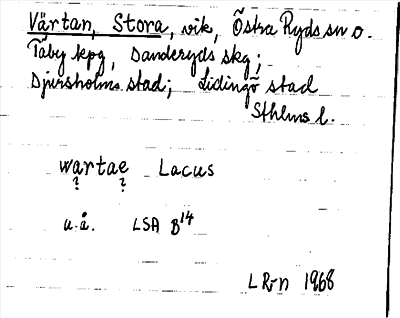 Värtan, Stora, vik, Östra Ryds sn o.
Täby kpg, Danderyds skg;
Djursholms stad; Lidingö stad
Sthlms l.
wartae Lacus
? ?
u.å. LSA B14
L R-n 1968